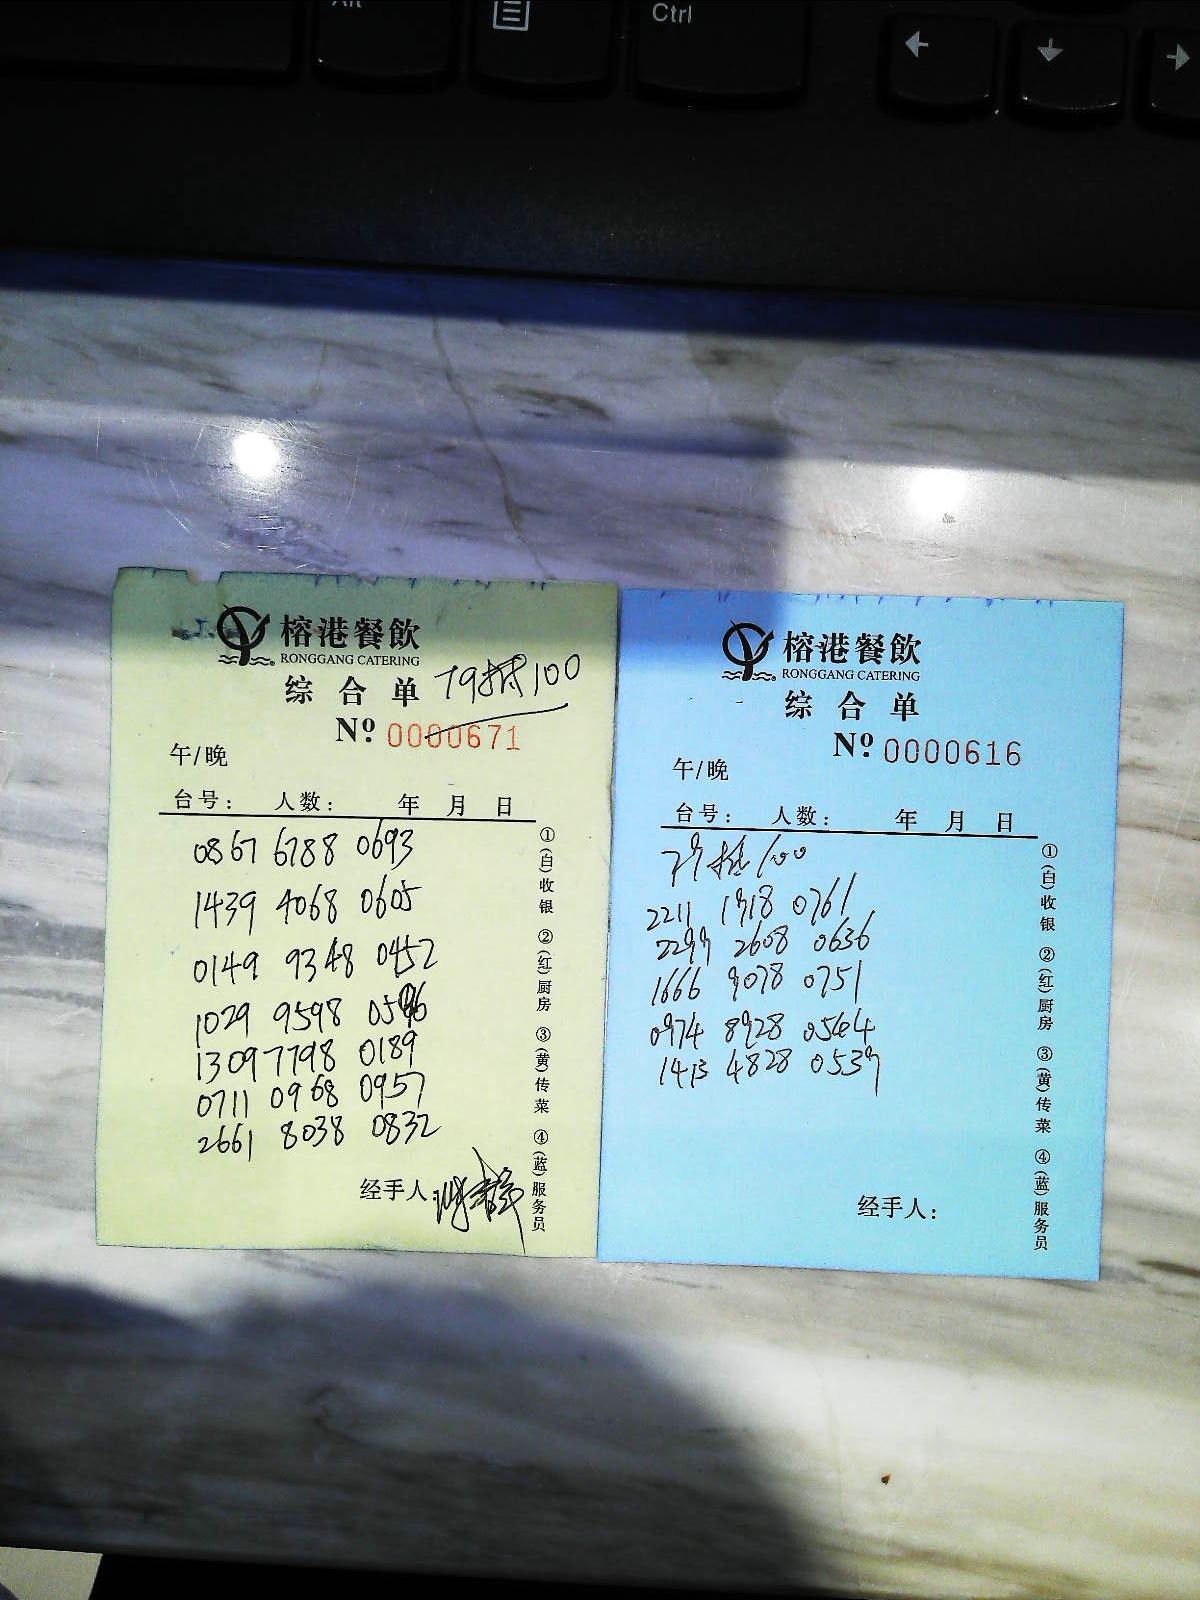 Alt
Ctrl
榕港餐飲
RONGGANG CATERING
综合单 79抵100
Nº 0000671
午/晚
台号: 人数: 年 月 日
0867 6788 0693
1439 4068 0605
0149 9348 0452
1029 9598 0596
1309 7798 0189
0711 0968 0957
2661 8038 0832
经手人:
①(白)收银 ②(红)厨房 ③(黄)传菜 ④(蓝)服务员
榕港餐飲
RONGGANG CATERING
综合单
Nº 0000616
午/晚
台号: 人数: 年 月 日
79抵100
2211 1918 0761
2299 2608 0636
1666 9078 0751
0974 8928 0564
1413 4828 0539
经手人:
①(白)收银 ②(红)厨房 ③(黄)传菜 ④(蓝)服务员